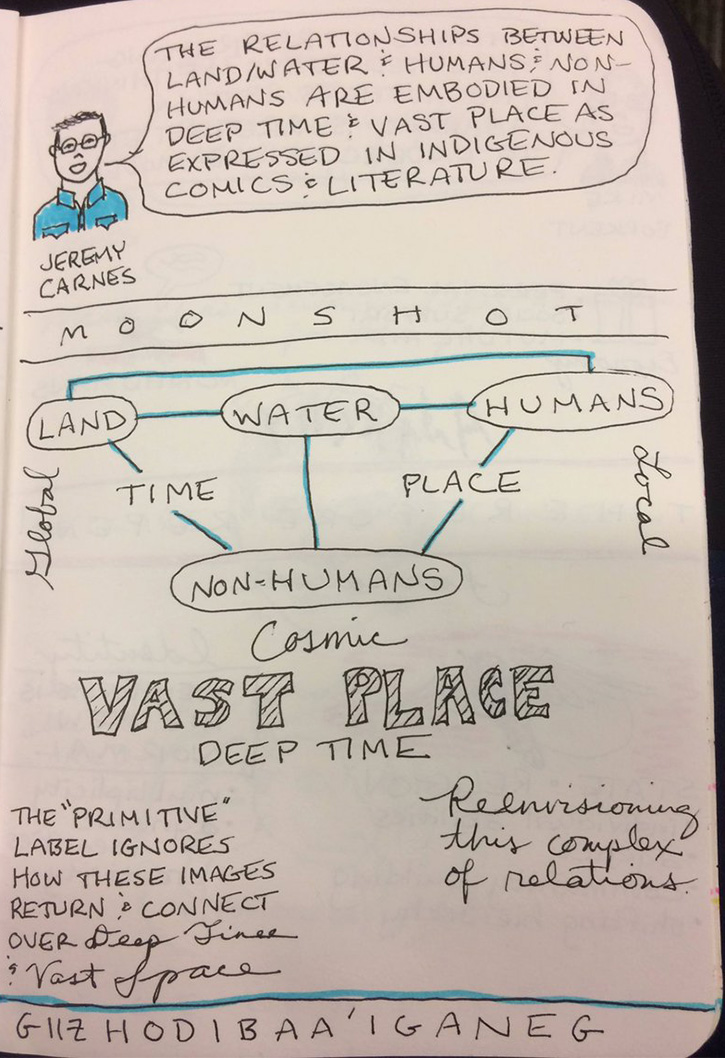 THE RELATIONSHIPS BETWEEN
LAND/WATER & HUMANS & NON-
HUMANS ARE EMBODIED IN
DEEP TIME & VAST PLACE AS
EXPRESSED IN INDIGENOUS
COMICS & LITERATURE.
JEREMY
CARNES
MOONSHOT
LAND
WATER
HUMANS
Global
TIME
PLACE
Local
NON-HUMANS
Cosmic
VAST PLACE
DEEP TIME
THE "PRIMITIVE"
LABEL IGNORES
HOW THESE IMAGES
RETURN & CONNECT
OVER Deep Time
& Vast Space
Reenvisioning
this complex
of relations.
GIIZHODIBAA'IGANEG